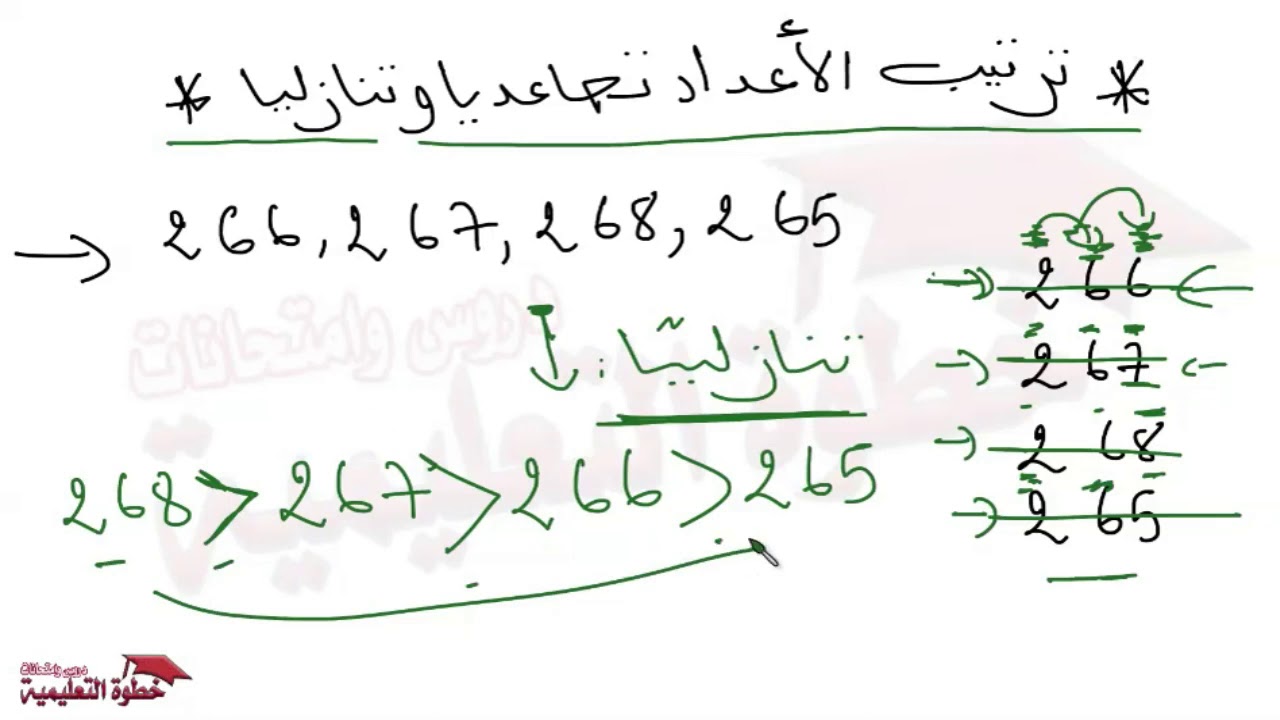 * ترتيب الأعداد تصاعديا و تنازليا *
266, 267, 268, 265
تنازليّا :
268 > 267 > 266 > 265
266
267
268
265
دروس وامتحانات
خطوة التعليمية
دروس وامتحانات
خطوة التعليمية